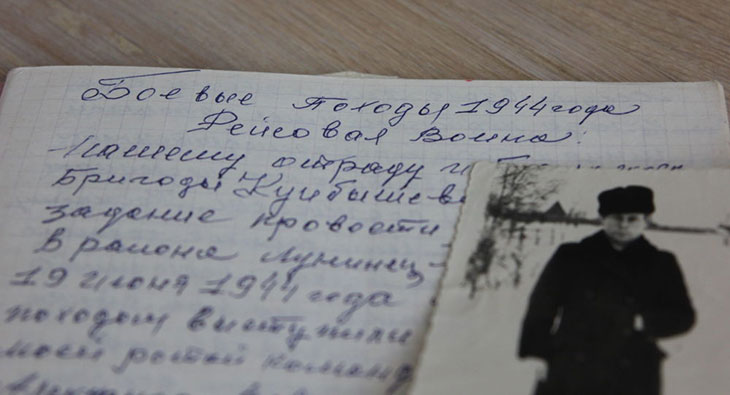 Боевые походы 1944 года
Рейсовая воина:
Нашему отряду и
Бригоды Куйбышева
задание провости
в района Лунинец-
19 июня 1944 года
походом выступили
моей ротой команд